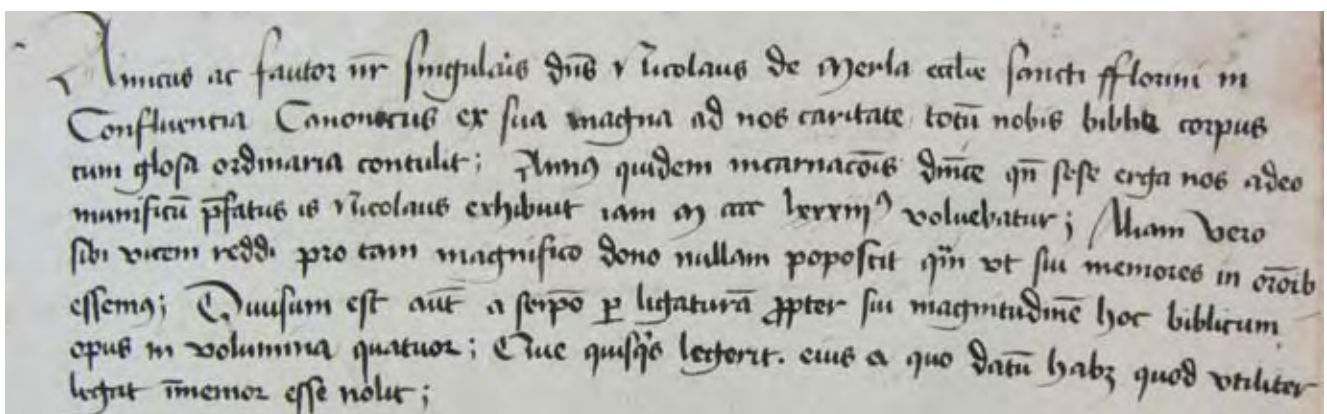 Amicus ac fautor nr̄ singularis dn̄s Nicolaus de Merla eccl̄ie sancti fflorini in
Confluencia Canonicus ex sua magna ad nos caritate totū nobis biblie corpus
cum glosa ordinaria contulit; Annꝰ quidem incarnacōis dn̄ice qn̄ sese erga nos adeo
munificū p̄fatus is Nicolaus exhibuit iam M cccc lxxxiijꝰ voluebatur; Aliam vero
sibi vicem reddi pro tam magnifico dono nullam poposcit qm̄ vt sui memores in or̄oib
essemꝰ; Diuisum est aut̄ a seip̄o ꝑ ligaturā ꝓpter sui magnitudinē hoc biblicum
opus in volumina quatuor; Que quisq̄s legerit. eius a quo datū habꝫ quod vtiliter
legat īmemor esse nolit;